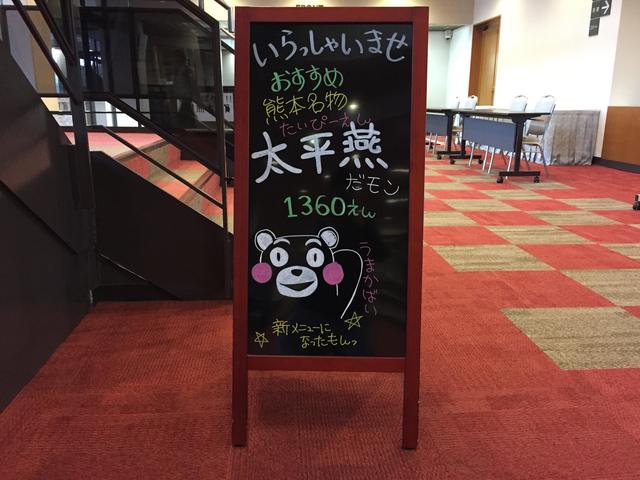 いらっしゃいませ
おすすめ
熊本名物
たいぴーえん
太平燕
だモン
1360えん
うまかばい
新メニューに
なったもんっ